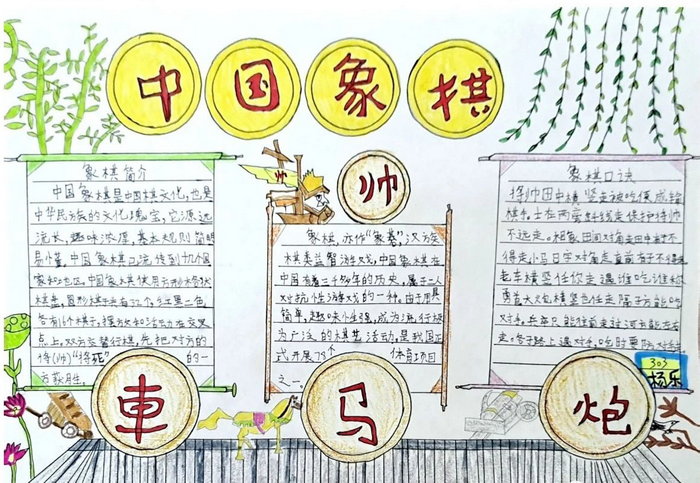 中国象棋
象棋简介
中国象棋是中国棋文化,也是
中华民族的文化瑰宝,它源远
流长,趣味浓厚,基本规则简明
易懂,中国象棋已流传到几个国
家和地区,中国象棋使用方形格状
棋盘,圆形棋子共有32个,红黑二色
各有16个棋子,摆放和活动在交叉
点上,双方交替行棋,先把对方的
将(帅)“将死”的一
方获胜。
帅
帅
象棋,亦作“象碁”,汉族
棋类益智游戏,中国象棋在
中国有着三千多年的历史,属于二人
对抗性游戏的一种。由于用具
简单,趣味性强,成为流行极
为广泛的棋艺活动,是我国正
式开展79个体育项目
之一。
象棋口诀
将帅田中横竖走被吃棋成输
棋。士在两旁斜线走保护将帅
不远走。相象田间对角走田中有子不
得走。小马日字对角走前有子不得走
老车横竖任你走遇谁吃谁称
勇者大大炮横竖也任走隔子方能吃
对手。兵卒只能往前走过河方能左右
走。
303
杨乐
車
马
炮